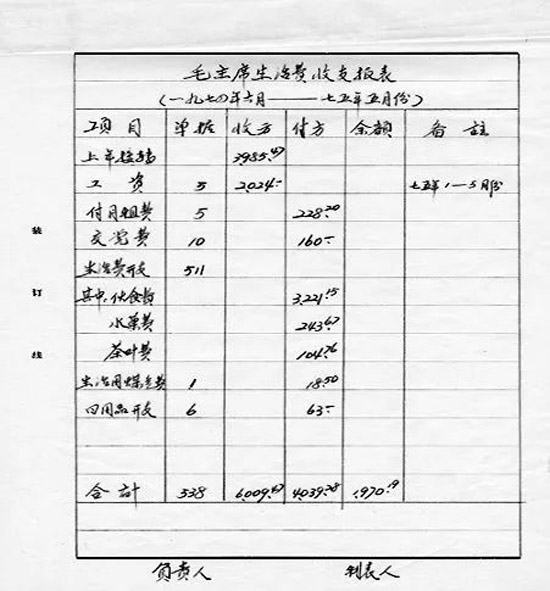 毛主席生活费收支报表
(一九七四年六月——七五年五月份)
项目 单据 收方 付方 余额 备註
上年结转 3985.47
工资 5 2,024.- 七五年1—5月份
付月租费 5 228.20
交党费 10 160.-
生活费开支 511
其中:伙食费 3,221.15
水菓费 243.67
茶叶费 104.76
生活用煤气费 1 18.50
日用品开支 6 63.-
合计 538 6,009.47 4,039.28 1,970.19
负责人 制表人
装
订
线